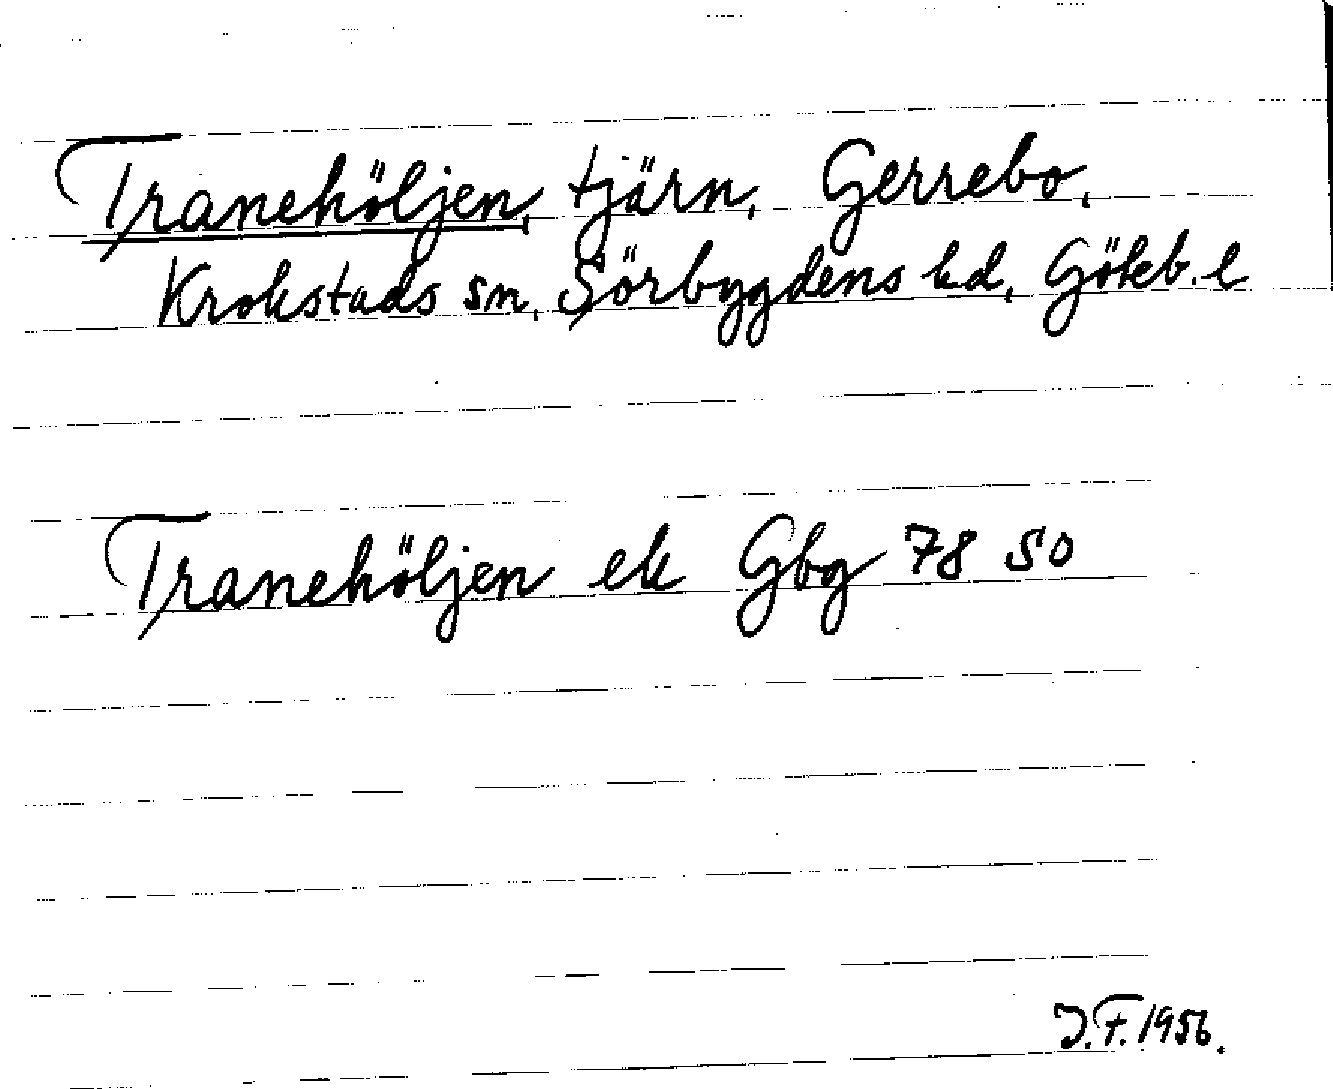 Tranehöljen, tjärn, Gerrebo,
Krokstads sn, Sörbygdens hd, Göteb. l
Tranehöljen ek Gbg 78 SO
J.F. 1956.